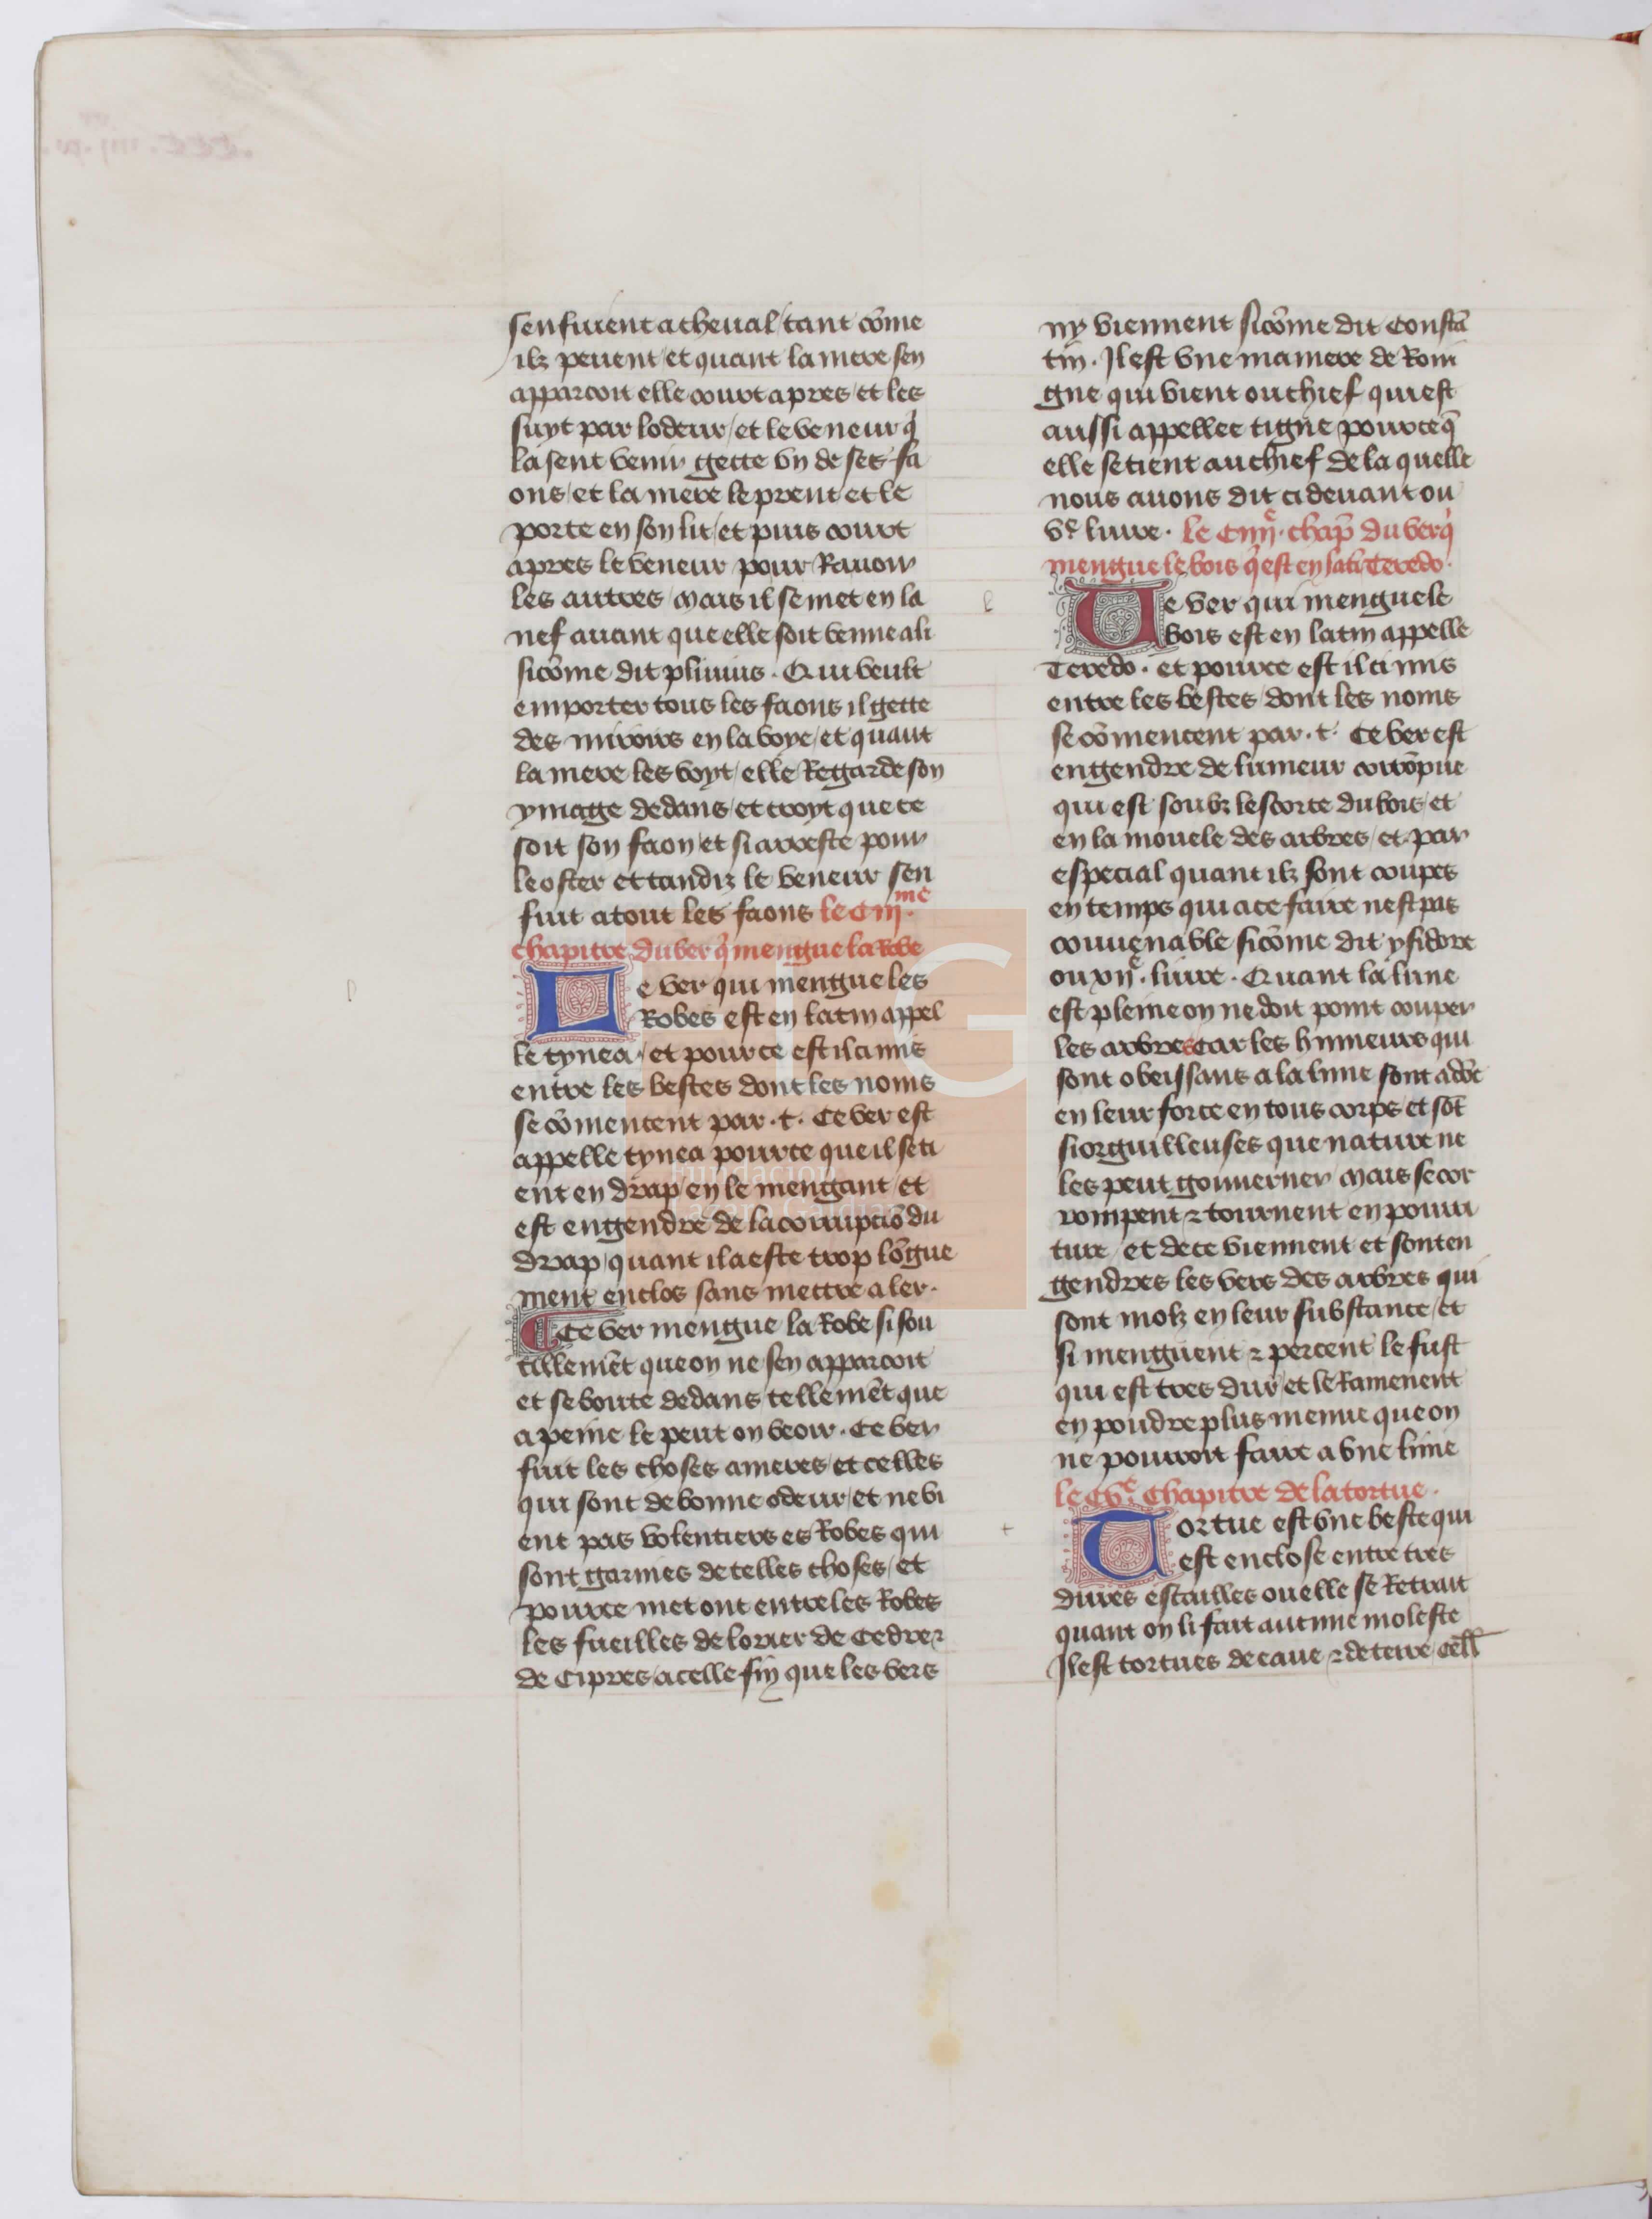 senfuient a cheual / tant cōme
ilz peuent / et quant la mere sen
apparcoit elle court apres / et les
suyt par lodeur / et le veneur q̇
la sent venir gette vn de ses fa
ons / et la mere le prent et le
porte en son lit / et puis court
apres le veneur pour Rauoir
les autres / mais il se met en la
nef auant que elle soit venue a li
sicōme dit plinius . Qui veult
emporter tous les faons il gette
des miroirs en la voye / et quant
la mere les voyt / elle Regarde son
ymage dedans / et croyt que ce
soit son faon / et si arreste pour
le oster et tandiz le veneur sen
fuit a tout les faons le C iij.me
chapitre du ver q̇ mengue la Robe
Le ver qui mengue les
Robes est en latin appel
le tynea / et pource est il ci mis
entre les bestes dont les noms
se cōmencent par .t. Ce ver est
appelle tynea pource que il se ti
ent en drap / en le mengant / et
est engendre de la corrupciō du
drap / quant il a este trop lōgue
ment enclos sans mettre a ler .
Ce ver mengue la Robe si sou
tillemēt que on ne sen apparcoit
et se boute dedans tellemēt que
a peine le peut on veoir . Ce ver
fuit les choses ameres / et celles
qui sont de bonne odeur / et ne vi
ent pas volentiers es Robes qui
sont garnies de telles choses / et
pource met ont entre les Robes
les fueilles de lorier de Cedre ⁊
de Cipres / a celle fin que les vers
ny viennent sicōme dit Constā
tin . Il est vne maniere de Roni
gne qui vient ou chief qui est
aussi appellee tigne pource q̄
elle se tient au chief de la quelle
nous auons dit ci deuant ou
ve liure . le C iiije . chap̄ du ver q̇
mengue le bois q̇ est en lati Teredo .
Le ver qui mengue le
bois est en latin appelle
Teredo . et pource est il ci mis
entre les bestes / dont les noms
se cōmencent par .t. Ce ver est
engendre de lumeur corrōpue
qui est soubz lescorce du bois / et
en la mouele des arbres / et par
especial quant ilz sont coupes
en temps qui a ce faire nest pas
conuenable sicōme dit ysidore
ou xije . liure . Quant la lune
est pleine on ne doit point couper
les arbres car les humeurs qui
sont obeissans a la lune sont adōc
en leur force en tous corps / et sōt
si orguilleuses que nature ne
les peut gouuerner / mais se cor
rompent ⁊ tournent en pourri
ture / et de ce viennent et sont en
gendres les vers des arbres qui
sont molz en leur substance / et
si menguent ⁊ percent le fust
qui est tres dur / et le Ramenent
en poudre plus menue que on
ne pourroit faire a vne lime
le C ve. Chapitre de la tortue .
Tortue est vne beste qui
est enclose entre tres
dures escailles ou elle se Retrait
quant on li fait aucune moleste
Il est tortues de eaue ⁊ de terre / cell̄